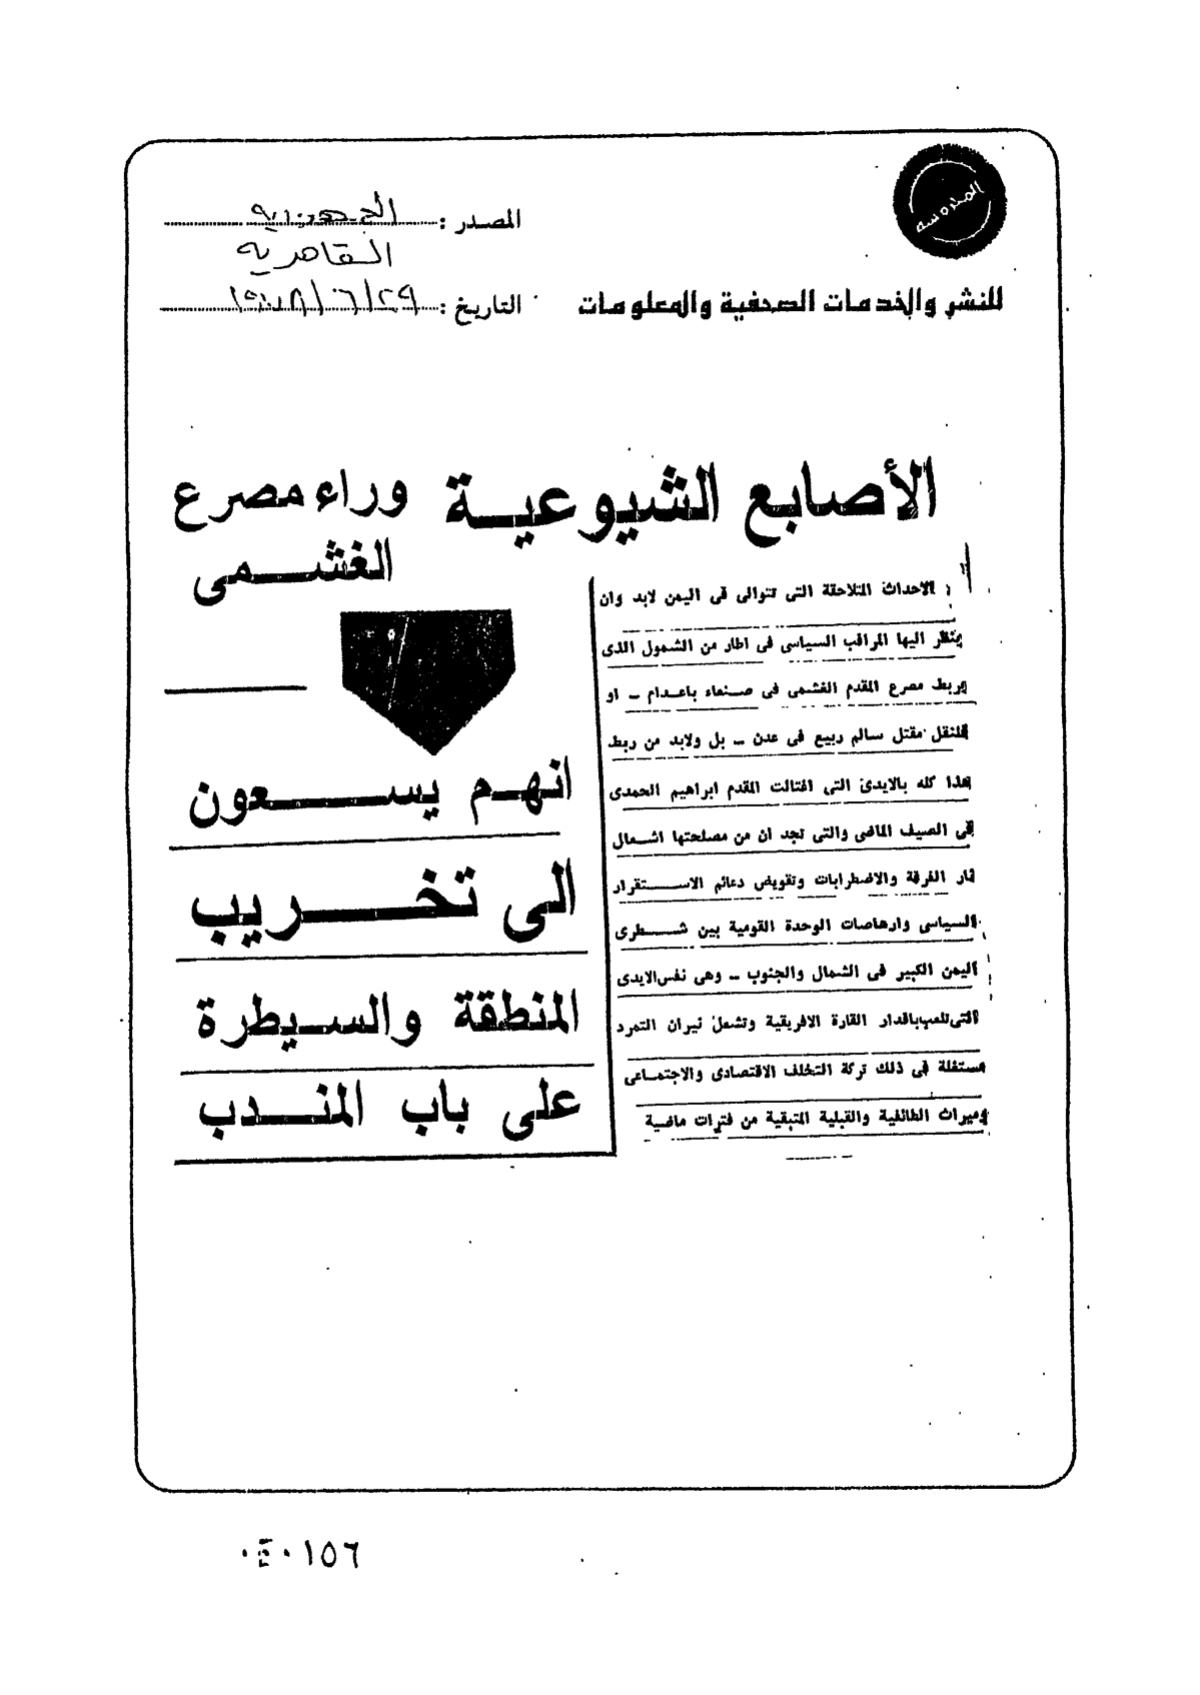 المصدر : الجمهورية
القاهرية
للنشر والخدمات الصحفية والمعلومات
التاريخ : ٢٩/٦/١٩٧٨
الأصابع الشيوعية وراء مصرع
الغشمى
الاحداث المتلاحقة التى تتوالى فى اليمن لابد وان
ينظر اليها المراقب السياسى فى اطار من الشمول الذى
يربط مصرع المقدم الغشمى فى صنعاء باعدام – او
لنقل مقتل سالم ربيع فى عدن – بل ولابد من ربط
هذا كله بالايدى التى اغتالت المقدم ابراهيم الحمدى
فى الصيف الماضى والتى تجد ان من مصلحتها اشعال
نار الفرقة والاضطرابات وتقويض دعائم الاستقرار
السياسى وارهاصات الوحدة القومية بين شطرى
اليمن الكبير فى الشمال والجنوب – وهى نفس الايدى
التى تلعب باقدار القارة الافريقية وتشعل نيران التمرد
مستغلة فى ذلك تركة التخلف الاقتصادى والاجتماعى
وميراث الطائفية والقبلية المتبقية من فترات ماضية
انهم يسعون
الى تخريب
المنطقة والسيطرة
على باب المندب